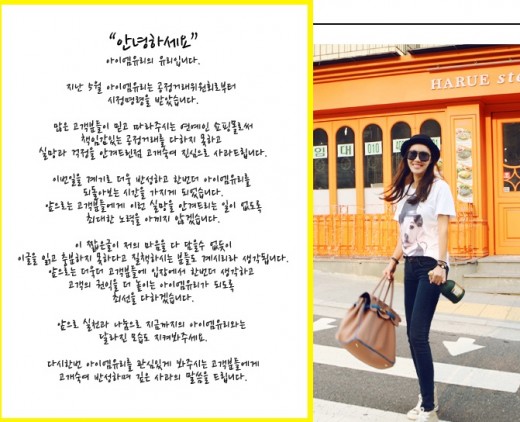 “안녕하세요”
아이엠유리의 유리입니다.
지난 5월 아이엠유리는 공정거래위원회로부터
시정명령을 받았습니다.
많은 고객분들이 믿고 따라주시는 연예인 쇼핑몰로써
책임감있는 공정거래를 다하지 못하고
실망과 걱정을 안겨드린점 고개숙여 진심으로 사과드립니다.
이번일을 계기로 더욱 반성하고 한번더 아이엠유리를
되돌아보는 시간을 가지게 되었습니다.
앞으로는 고객분들에게 이런 실망을 안겨드리는 일이 없도록
최대한 노력을 아끼지 않겠습니다.
이 짧은글이 저의 마음을 다 담을수 없듯이
이글을 읽고 충분하지 못하다고 질책하시는 분들도 계시리라 생각됩니다.
앞으로는 더욱더 고객분들에 입장에서 한번더 생각하고
고객의 권익을 더 높이는 아이엠유리가 되도록
최선을 다하겠습니다.
앞으로 실천과 나눔으로 지금까지의 아이엠유리와는
달라진 모습도 지켜봐주세요.
다시한번 아이엠유리를 관심있게 봐주시는 고객분들에게
고개숙여 반성하며 깊은 사과의 말씀을 드립니다.
HARUE sto
임대 010